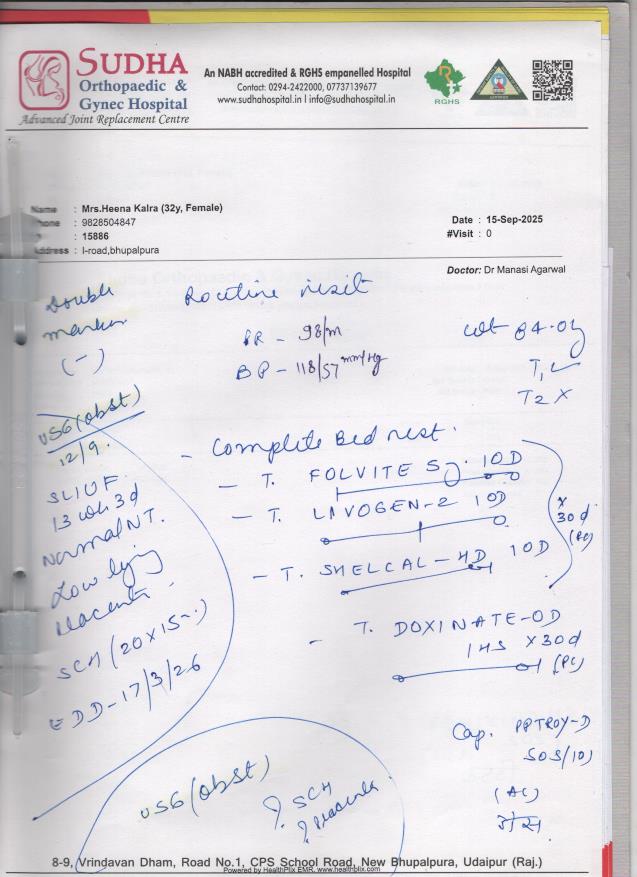 SUDHA
Orthopaedic &
Gynec Hospital
Advanced Joint Replacement Centre
An NABH accredited & RGHS empanelled Hospital
Contact: 0294-2422000, 07737139677
www.sudhahospital.in | info@sudhahospital.in
RGHS
Name : Mrs.Heena Kalra (32y, Female)
Phone : 9828504847
: 15886
Address : I-road,bhupalpura
Date : 15-Sep-2025
#Visit : 0
Doctor: Dr Manasi Agarwal
Double
marker
(-)
Routine visit
PR - 98/m
BP - 118/57 mm/Hg
T1 ✓
T2 X
USG (obst)
12/9.
SLIUF
13 wk 3d
Normal NT.
Low lying
Placenta.
SCH (20x15
EDD - 17/3/26
- Complete Bed rest.
- T. FOLVITE 5 OD
- T. LIVOGEN-Z 1OD
- T. SHELCAL-HD 1OD
x
30d
(PC)
- T. DOXINATE-OD
1HS x 30d
(PC)
Cap.
SOS/10
(AC)
USG (obst)
? SCH
? Placenta
8-9, Vrindavan Dham, Road No.1, CPS School Road, New Bhupalpura, Udaipur (Raj.)
Powered by HealthPlix EMR. www.healthplix.com